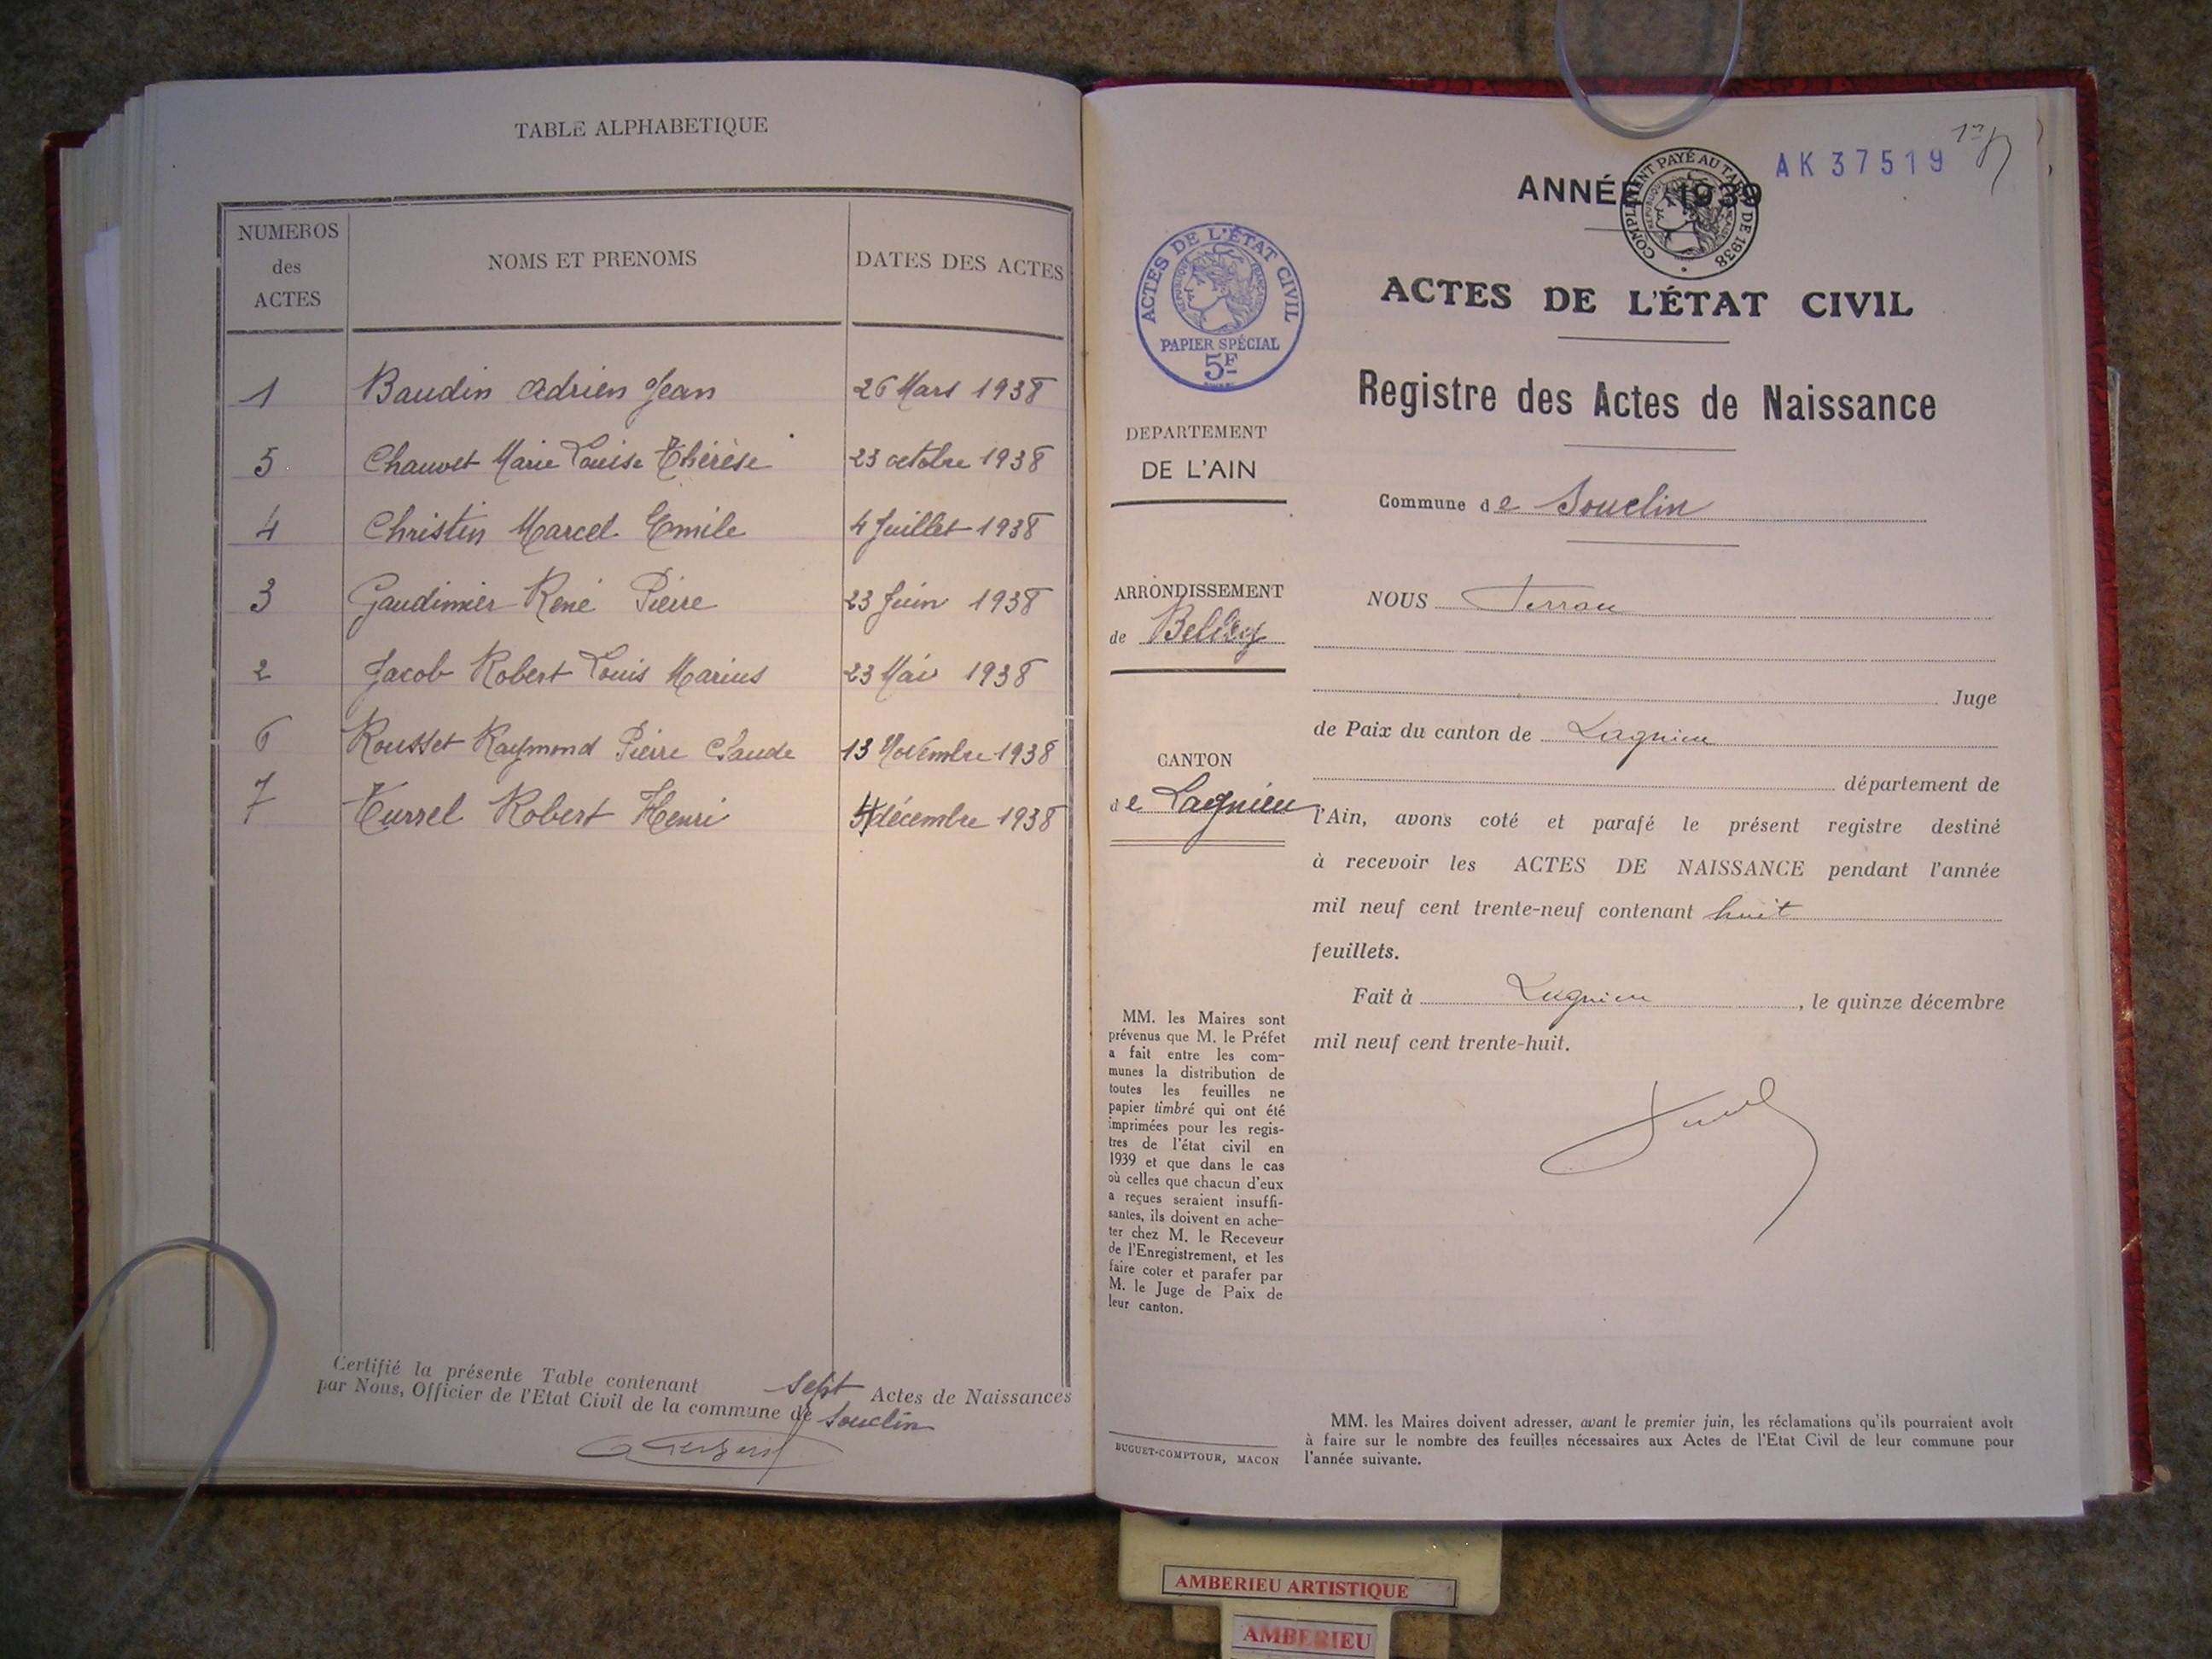 TABLE ALPHABETIQUE
NUMEROS des ACTES
NOMS ET PRENOMS
DATES DES ACTES
1 Baudin Adrien Jean 26 Mars 1938
5 Chauvet Marie Louise Thérèse 23 octobre 1938
4 Christin Marcel Emile 4 Juillet 1938
3 Gaudinier René Pierre 23 Juin 1938
2 Jacob Robert Louis Marius 23 Mai 1938
6 Rousset Raymond Pierre Claude 13 Novembre 1938
7 Turrel Robert Henri décembre 1938
Certifié la présente Table contenant sept Actes de Naissances
par Nous, Officier de l'Etat Civil de la commune de Souclin
AK37519
ANNÉE 1939
COMPLÉMENT PAYÉ AU TARIF DE 1938
ACTES DE L'ÉTAT CIVIL
RÉPUBLIQUE FRANÇAISE
PAPIER SPÉCIAL
5F
ACTES DE L'ÉTAT CIVIL
Registre des Actes de Naissance
Commune de Souclin
DEPARTEMENT
DE L'AIN
ARRONDISSEMENT
de Belley
CANTON
de Lagnieu
MM. les Maires sont
prévenus que M. le Préfet
a fait entre les com-
munes la distribution de
toutes les feuilles ne
papier timbré qui ont été
imprimées pour les regis-
tres de l'état civil en
1939 et que dans le cas
où celles que chacun d'eux
a reçues seraient insuffi-
santes, ils doivent en ache-
ter chez M. le Receveur
de l'Enregistrement, et les
faire coter et parafer par
M. le Juge de Paix de
leur canton.
BUGUET-COMPTOUR, MACON
NOUS
Juge
de Paix du canton de Lagnieu
département de
l'Ain, avons coté et parafé le présent registre destiné
à recevoir les ACTES DE NAISSANCE pendant l'année
mil neuf cent trente-neuf contenant huit
feuillets.
Fait à Lagnieu, le quinze décembre
mil neuf cent trente-huit.
MM. les Maires doivent adresser, avant le premier juin, les réclamations qu'ils pourraient avoit
à faire sur le nombre des feuilles nécessaires aux Actes de l'Etat Civil de leur commune pour
l'année suivante.
AMBERIEU ARTISTIQUE
AMBERIEU